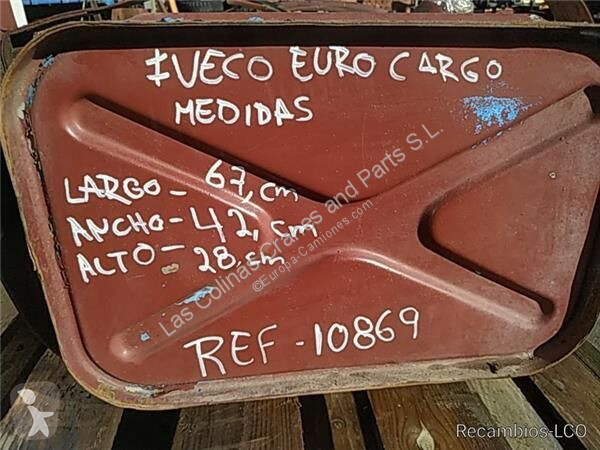 IVECO EURO CARGO
MEDIDAS
LARGO- 67,cm
ANCHO- 42,cm
ALTO- 28,cm
REF-10869
Las Colinas Cranes and Parts S.L.
©Europa-Camiones.com
Recambios-LCO